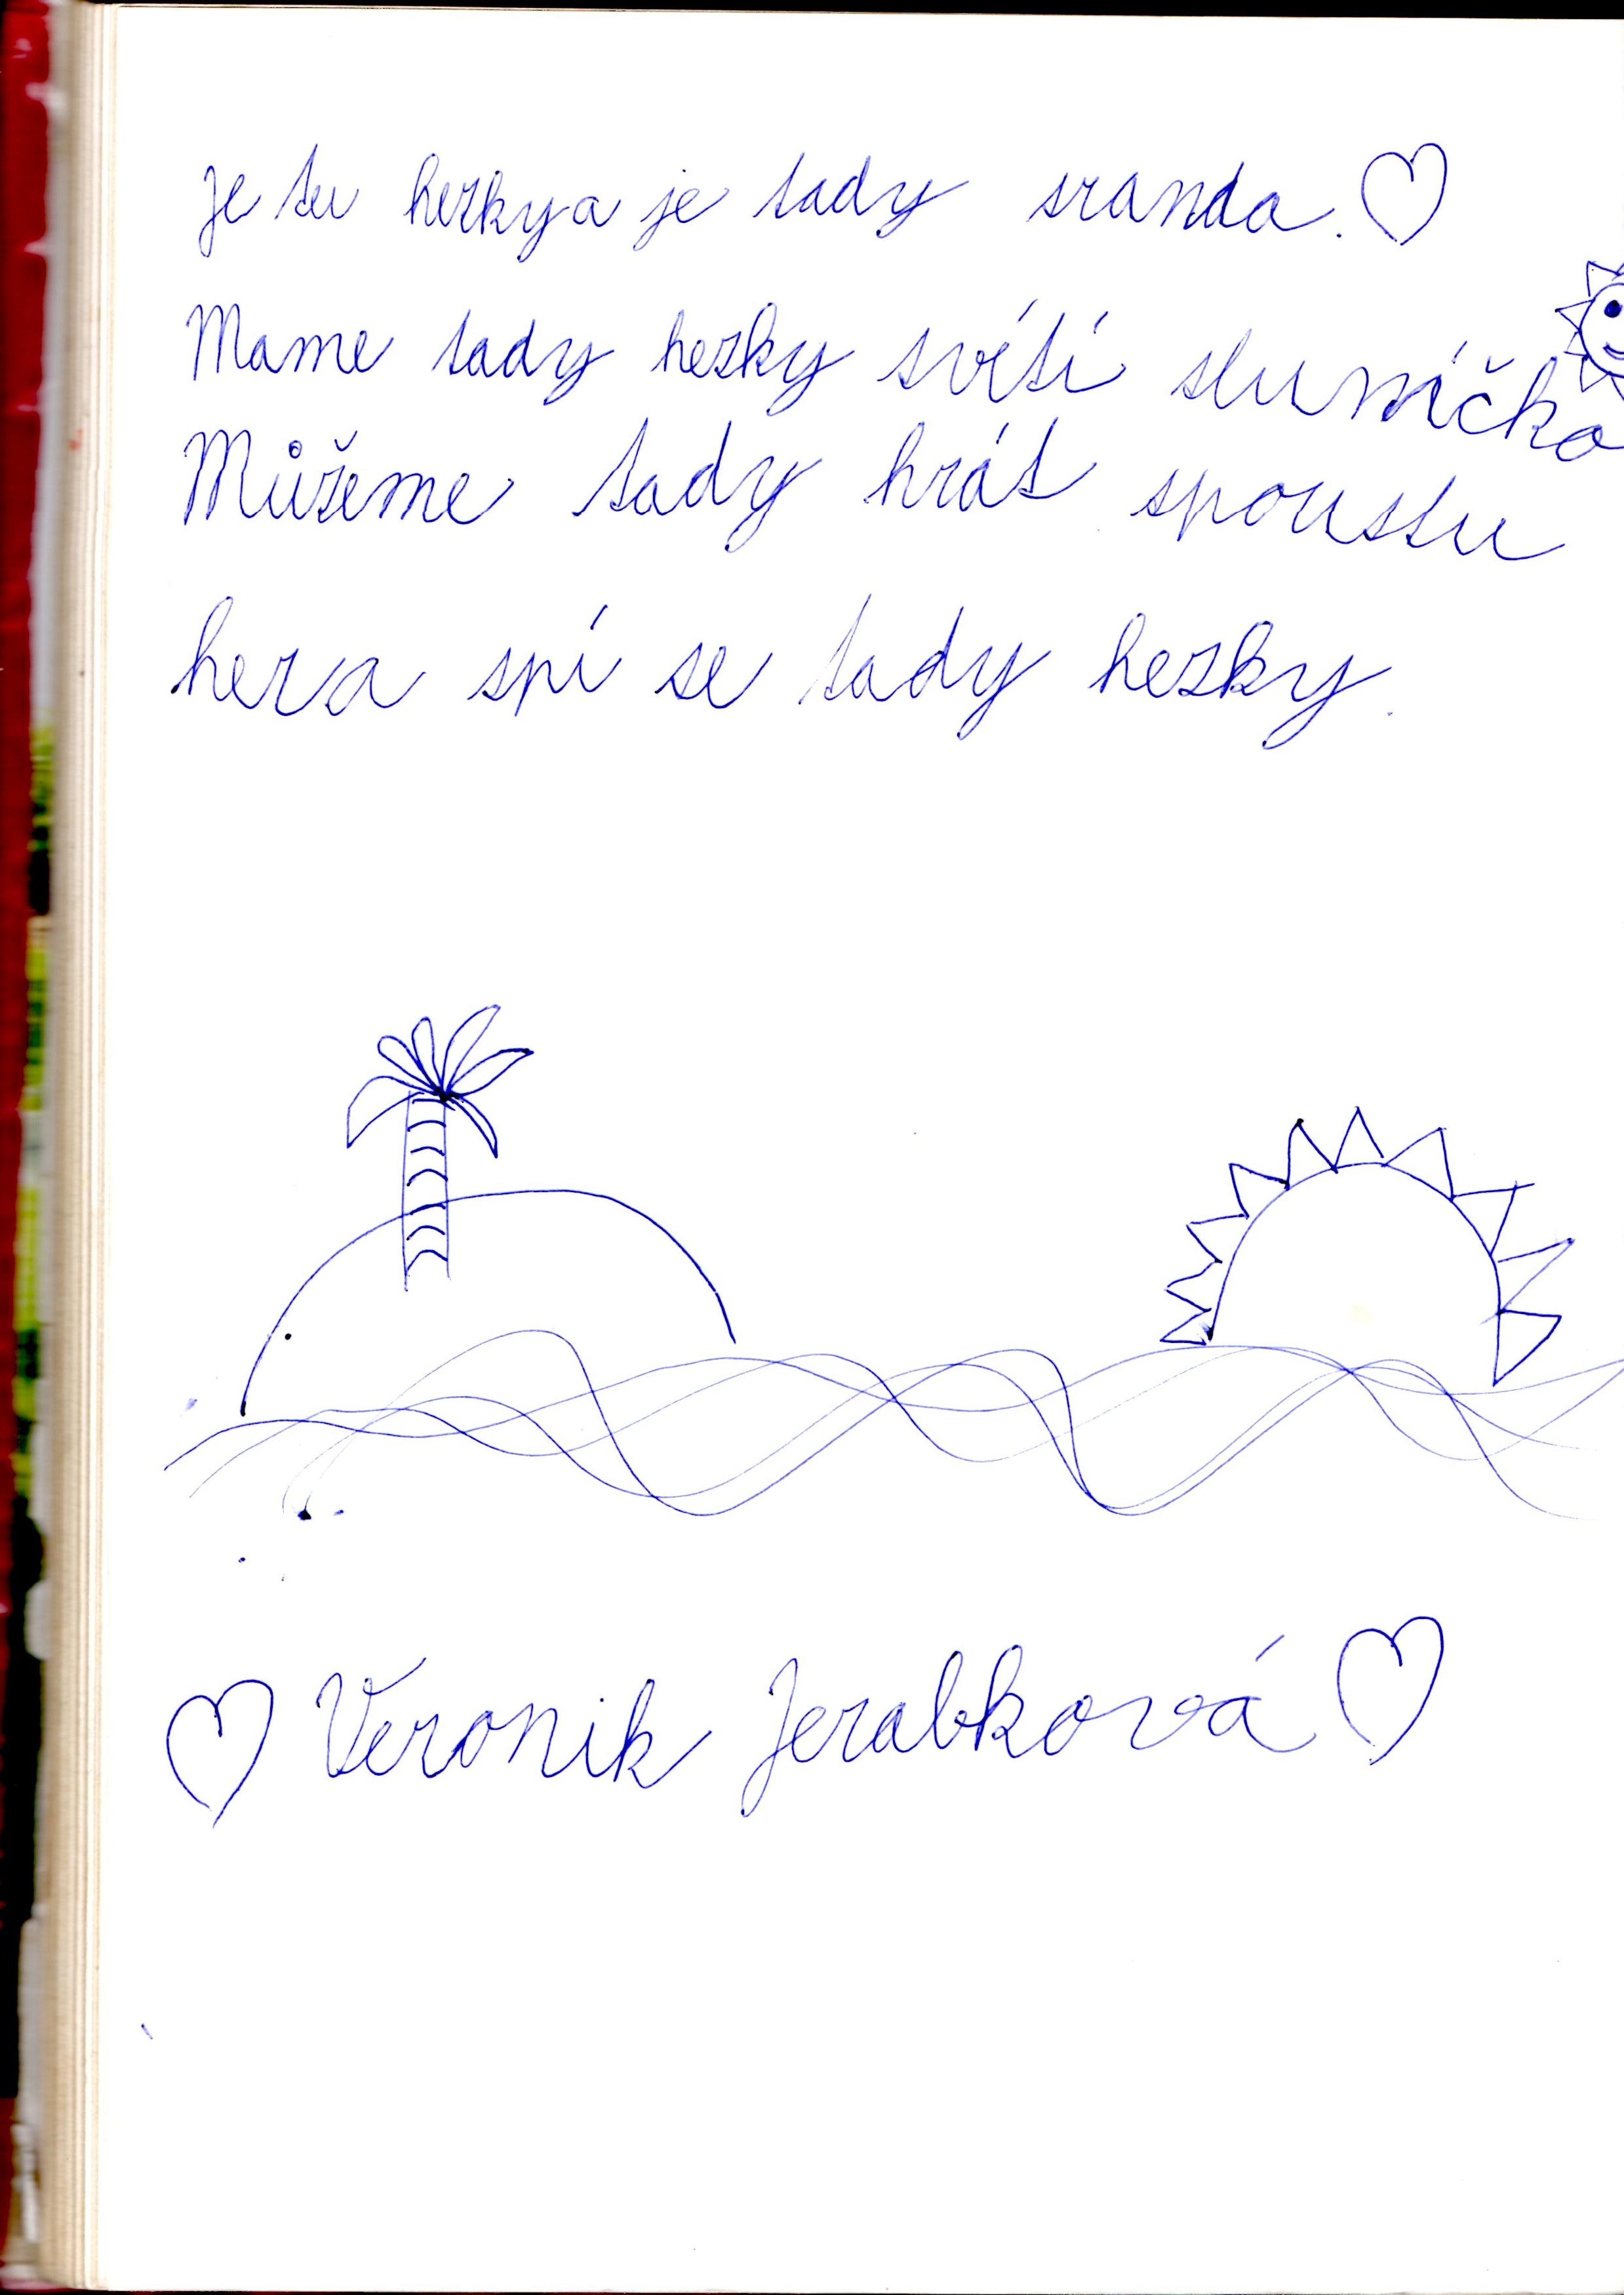 Je tu hezky a je tady sranda.
Mame tady hezky svítí sluníčko
Můžeme tady hrát spoustu
her a spí se tady hezky.
Veronik Jerabková